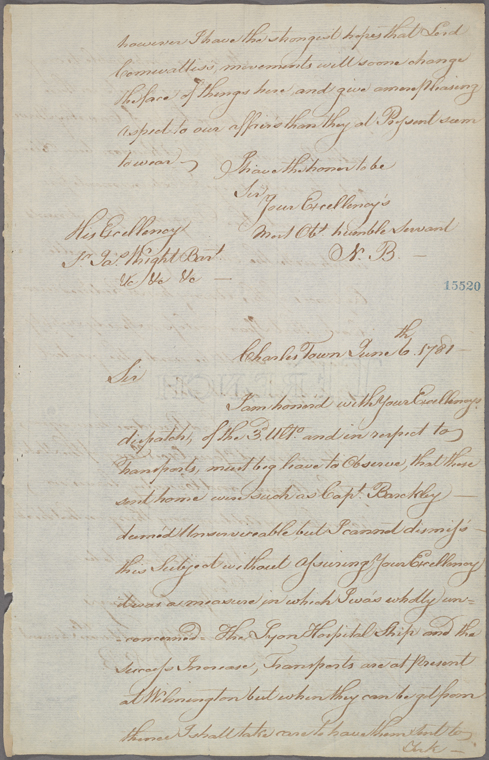 however I have the strongest hopes that Lord
Cornwallis's, movements will soone change
the face of things here and give a more pleasing
aspect to our affairs than they at Present seem
to wear —
I have the honor to be
Sir,
Your Excellency's
Most Obt humble Servant
N. B. —
His Excellency
Sr Jas. Wright Bart
&c &c &c —
15520
Charles Town June 6th. 1781 —
Sir
I am honord with Your Excellencys
dispatch, of the 3d. Ulto. and in respect to
Transports, must beg leave to Observe, that those
sent home were such as Capt. Barckley —
deemed Unserviceable but I cannot dismiss
this Subject without assuring Your Excellency
it was a measure in which I was wholly un=
=concerned. The Lyon Hospital Ship and the
Success Increase, Transports are at present
at Wilmington but when they can be got from
thence I shall take care to have them sent to